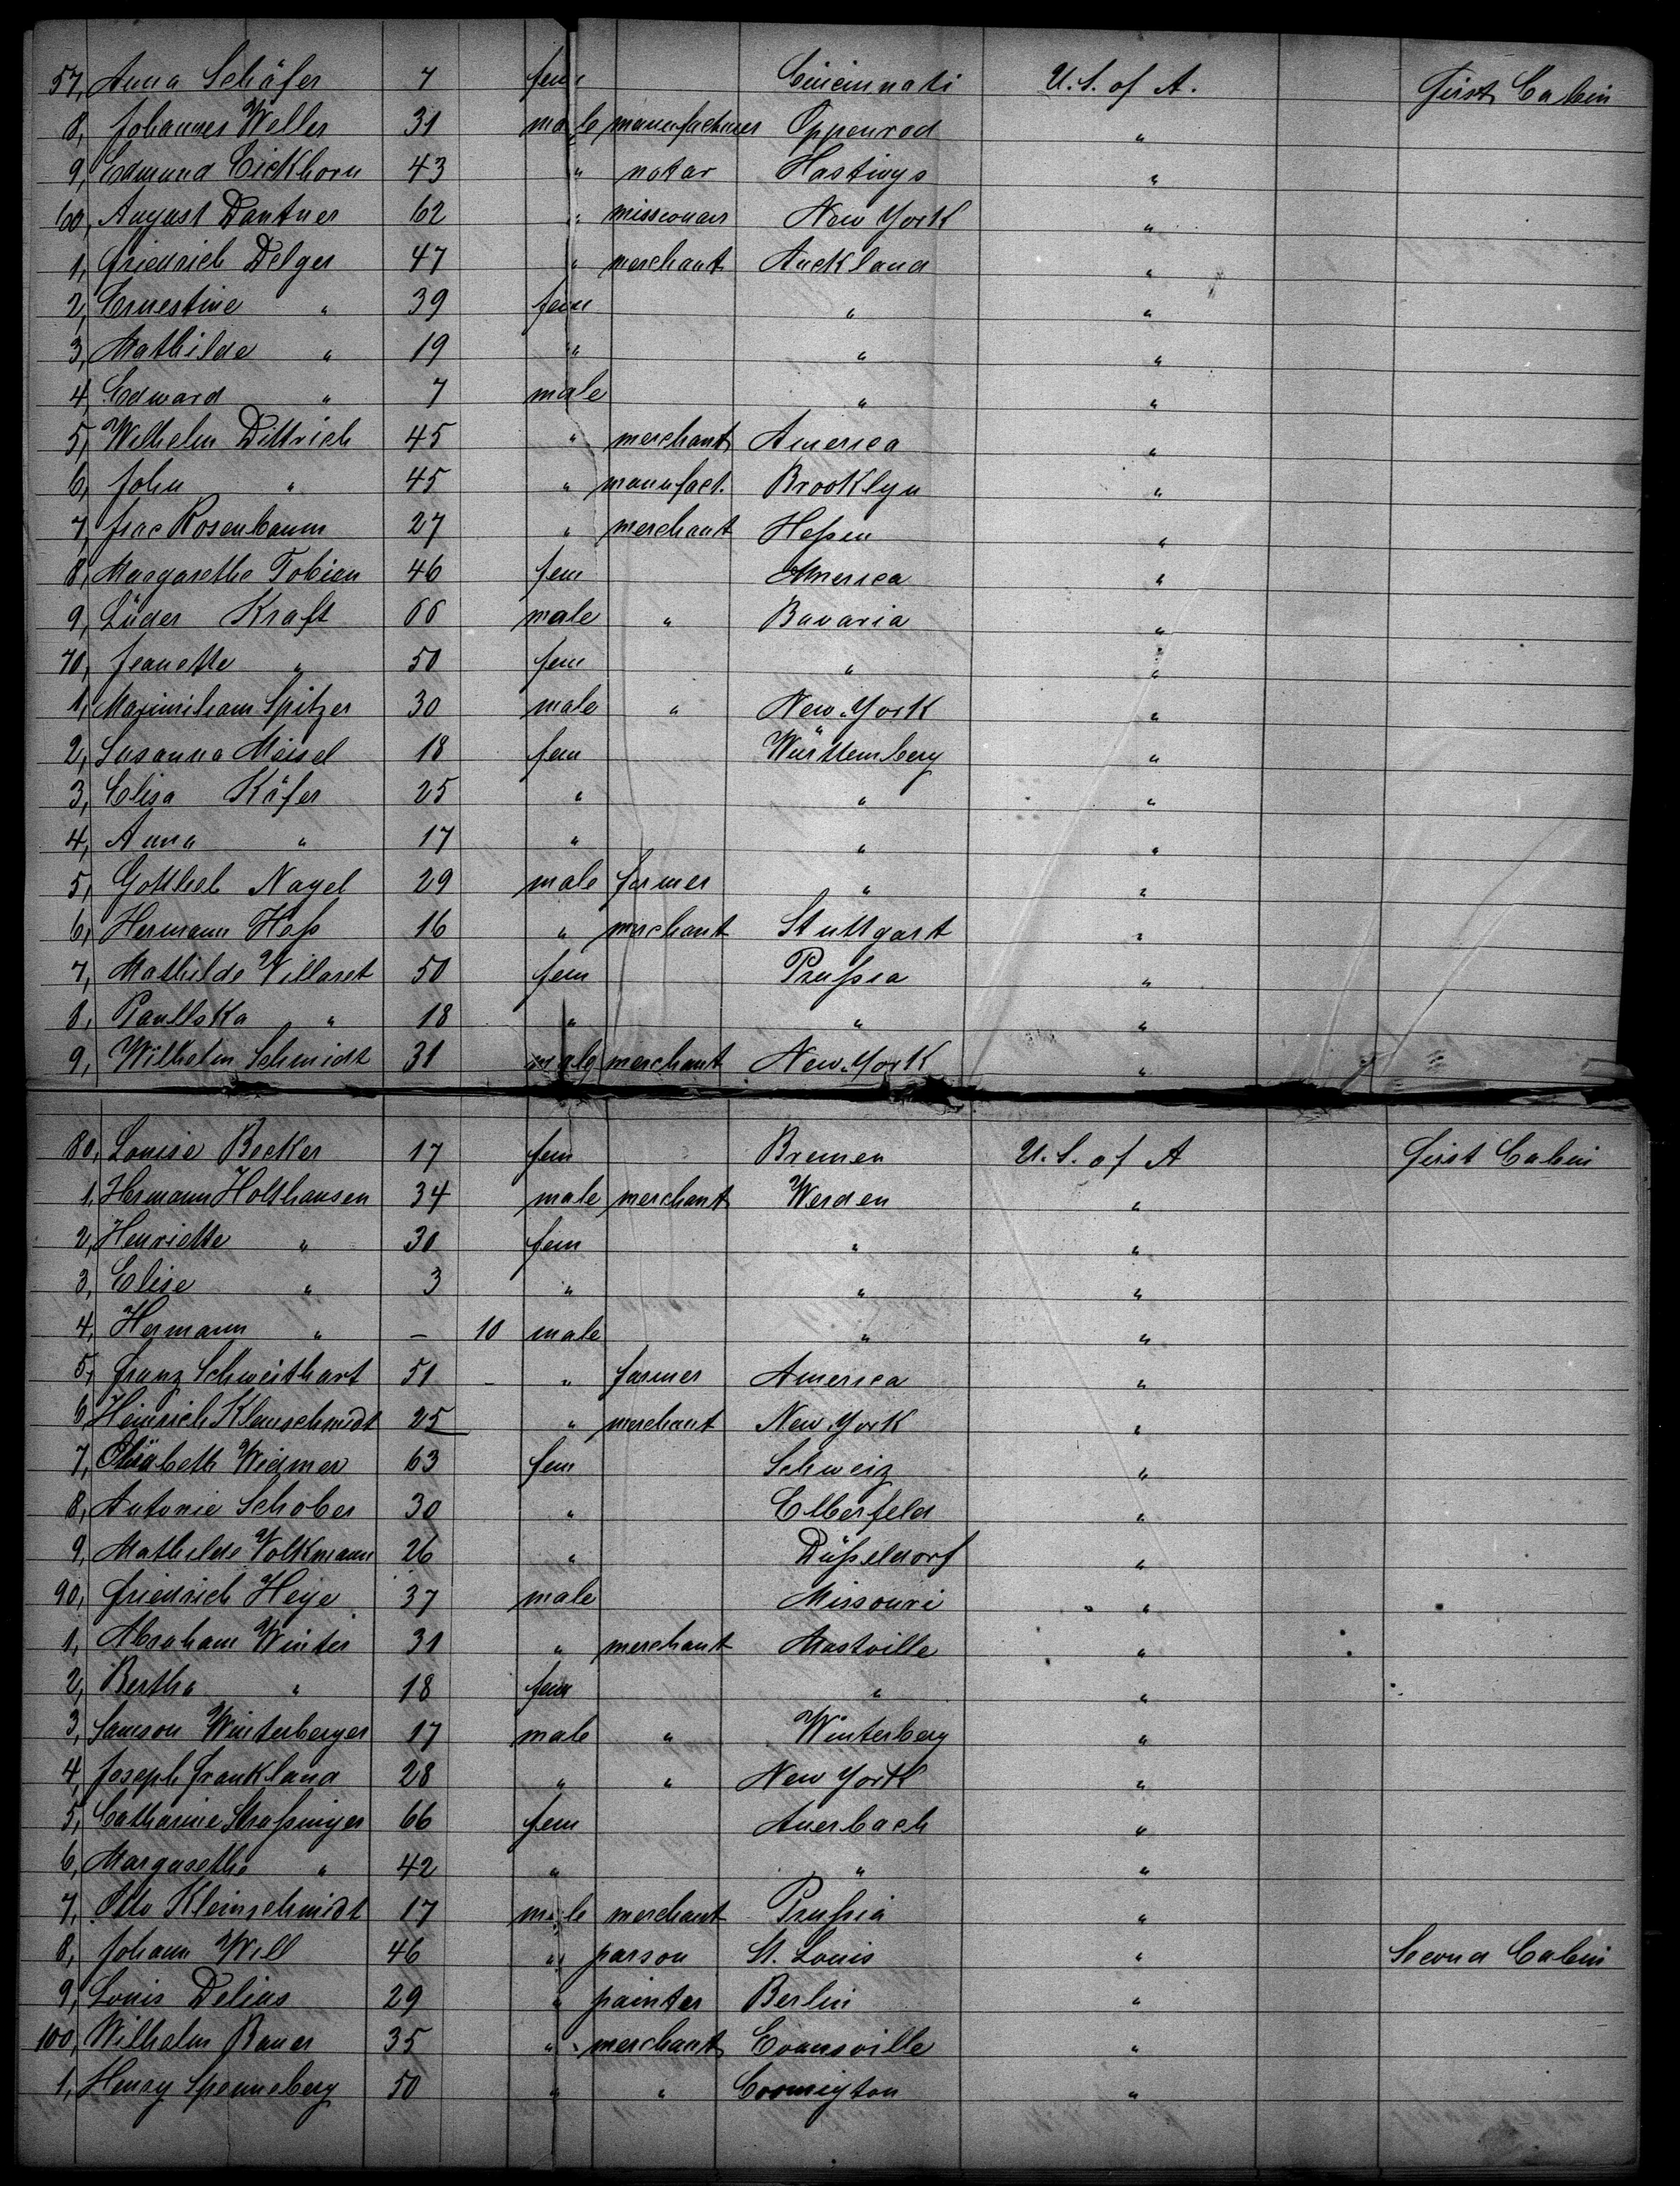 57, Anna Schäfer 7 fem Cincinnati U. S. of A. First Cabin
8, Johannes Weller 31 male manufacturer Oppenrod "
9, Edmund Eickhorn 43 " notar Hastings "
60, August Dantner 62 " missionar New York "
1, Friedrich Delger 47 " merchant Auckland "
2, Ernestine " 39 fem " "
3, Mathilde " 19 " " "
4, Edward " 7 male " "
5, Wilhelm Dittrich 45 " merchant America "
6, John " 45 " manufact. Brooklyn "
7, Isac Rosenbaum 27 " merchant Heßen "
8, Margarethe Tobien 46 fem America "
9, Lüder Kraft 66 male " Bavaria "
70, Jeanette " 50 fem " "
1, Maximiliam Spitzer 30 male " New-York "
2, Susanna Meisel 18 fem Württemberg "
3, Elisa Käfer 25 " " "
4, Anna " 17 " " "
5, Gottlieb Nagel 29 male farmer " "
6, Hermann Heß 16 " merchant Stuttgart "
7, Mathilde Villaret 50 fem Prußia "
8, " 18 " " "
9, Wilhelm Schmidt 31 male merchant New-York "
80, Louise Becker 17 fem Bremen U. S. of A First Cabin
1, Hermann Holthausen 34 male merchant Werden "
2, Henriette " 30 fem " "
3, Elise " 3 " " "
4, Hermann " – 10 male " "
5, Franz Schweithart 51 – " farmer America "
6, Heinrich Kleinschmidt 25 " merchant New York "
7, Elisabeth Widmer 63 fem Schweiz "
8, Antonie Schober 30 " Elberfeld "
9, Mathilde Volkmann 26 " Düßeldorf "
90, Friedrich Heye 37 male Missouri "
1, Abraham Winter 31 " merchant "
2, Bertha " 18 fem " "
3, Samson Winterberger 17 male " Winterberg "
4, Joseph Frankland 28 " " New York "
5, Catharine Straßinger 66 fem Auerbach "
6, Margarethe " 42 " " "
7, Otto Kleinschmidt 17 male merchant Prußia "
8, Johann Will 46 " parson St. Louis " Second Cabin
9, Louis Delius 29 " painter Berlin "
100, Wilhelm Bauer 35 " merchant Evansville "
1, Henry Spenneberg 50 " " "